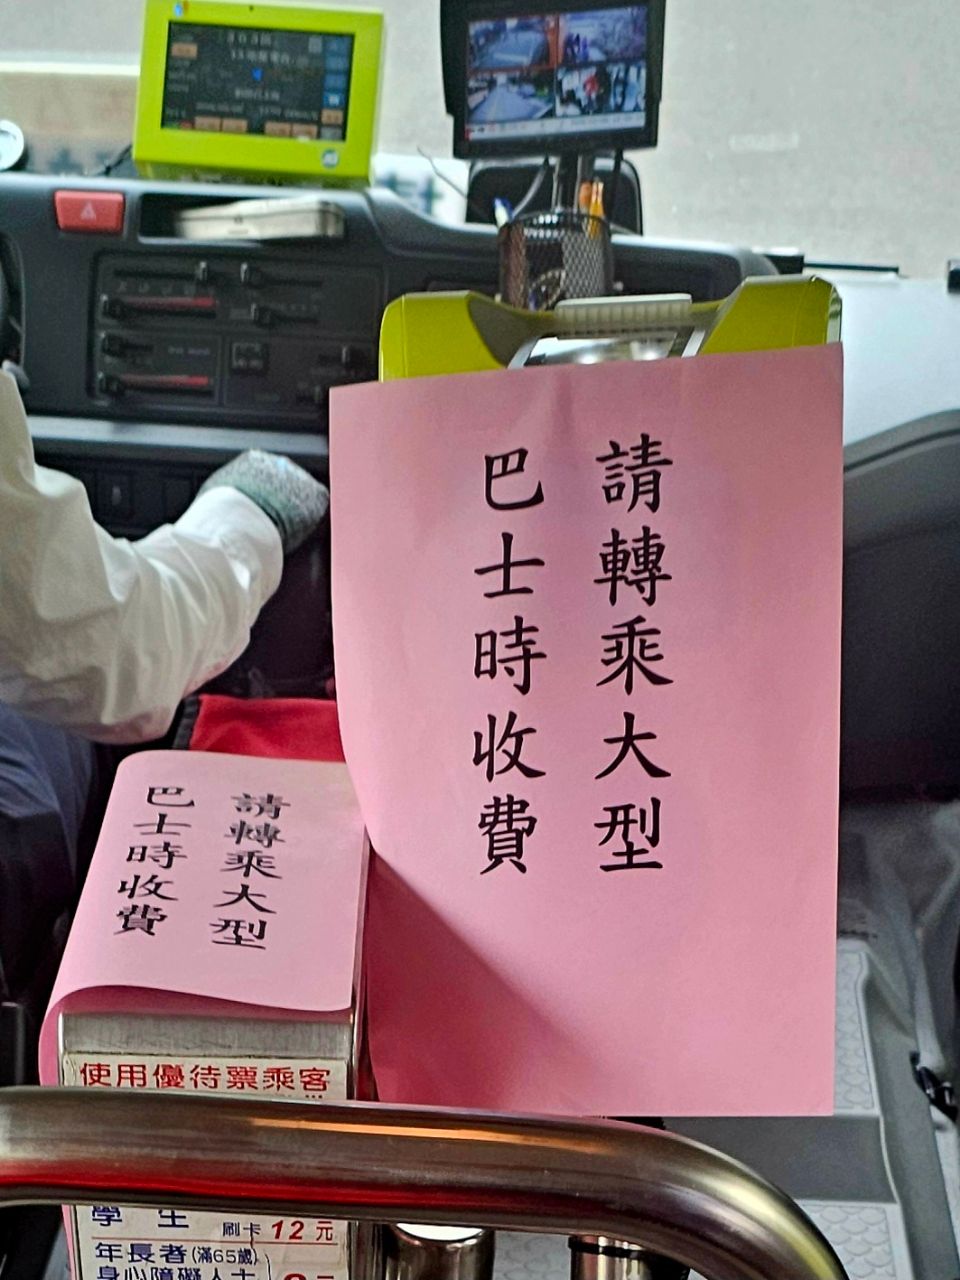 請轉乘大型
巴士時收費
請轉乘大型
巴士時收費
使用優待票乘客
學生
刷卡12元
年長者(滿65歲)
身心障礙人士